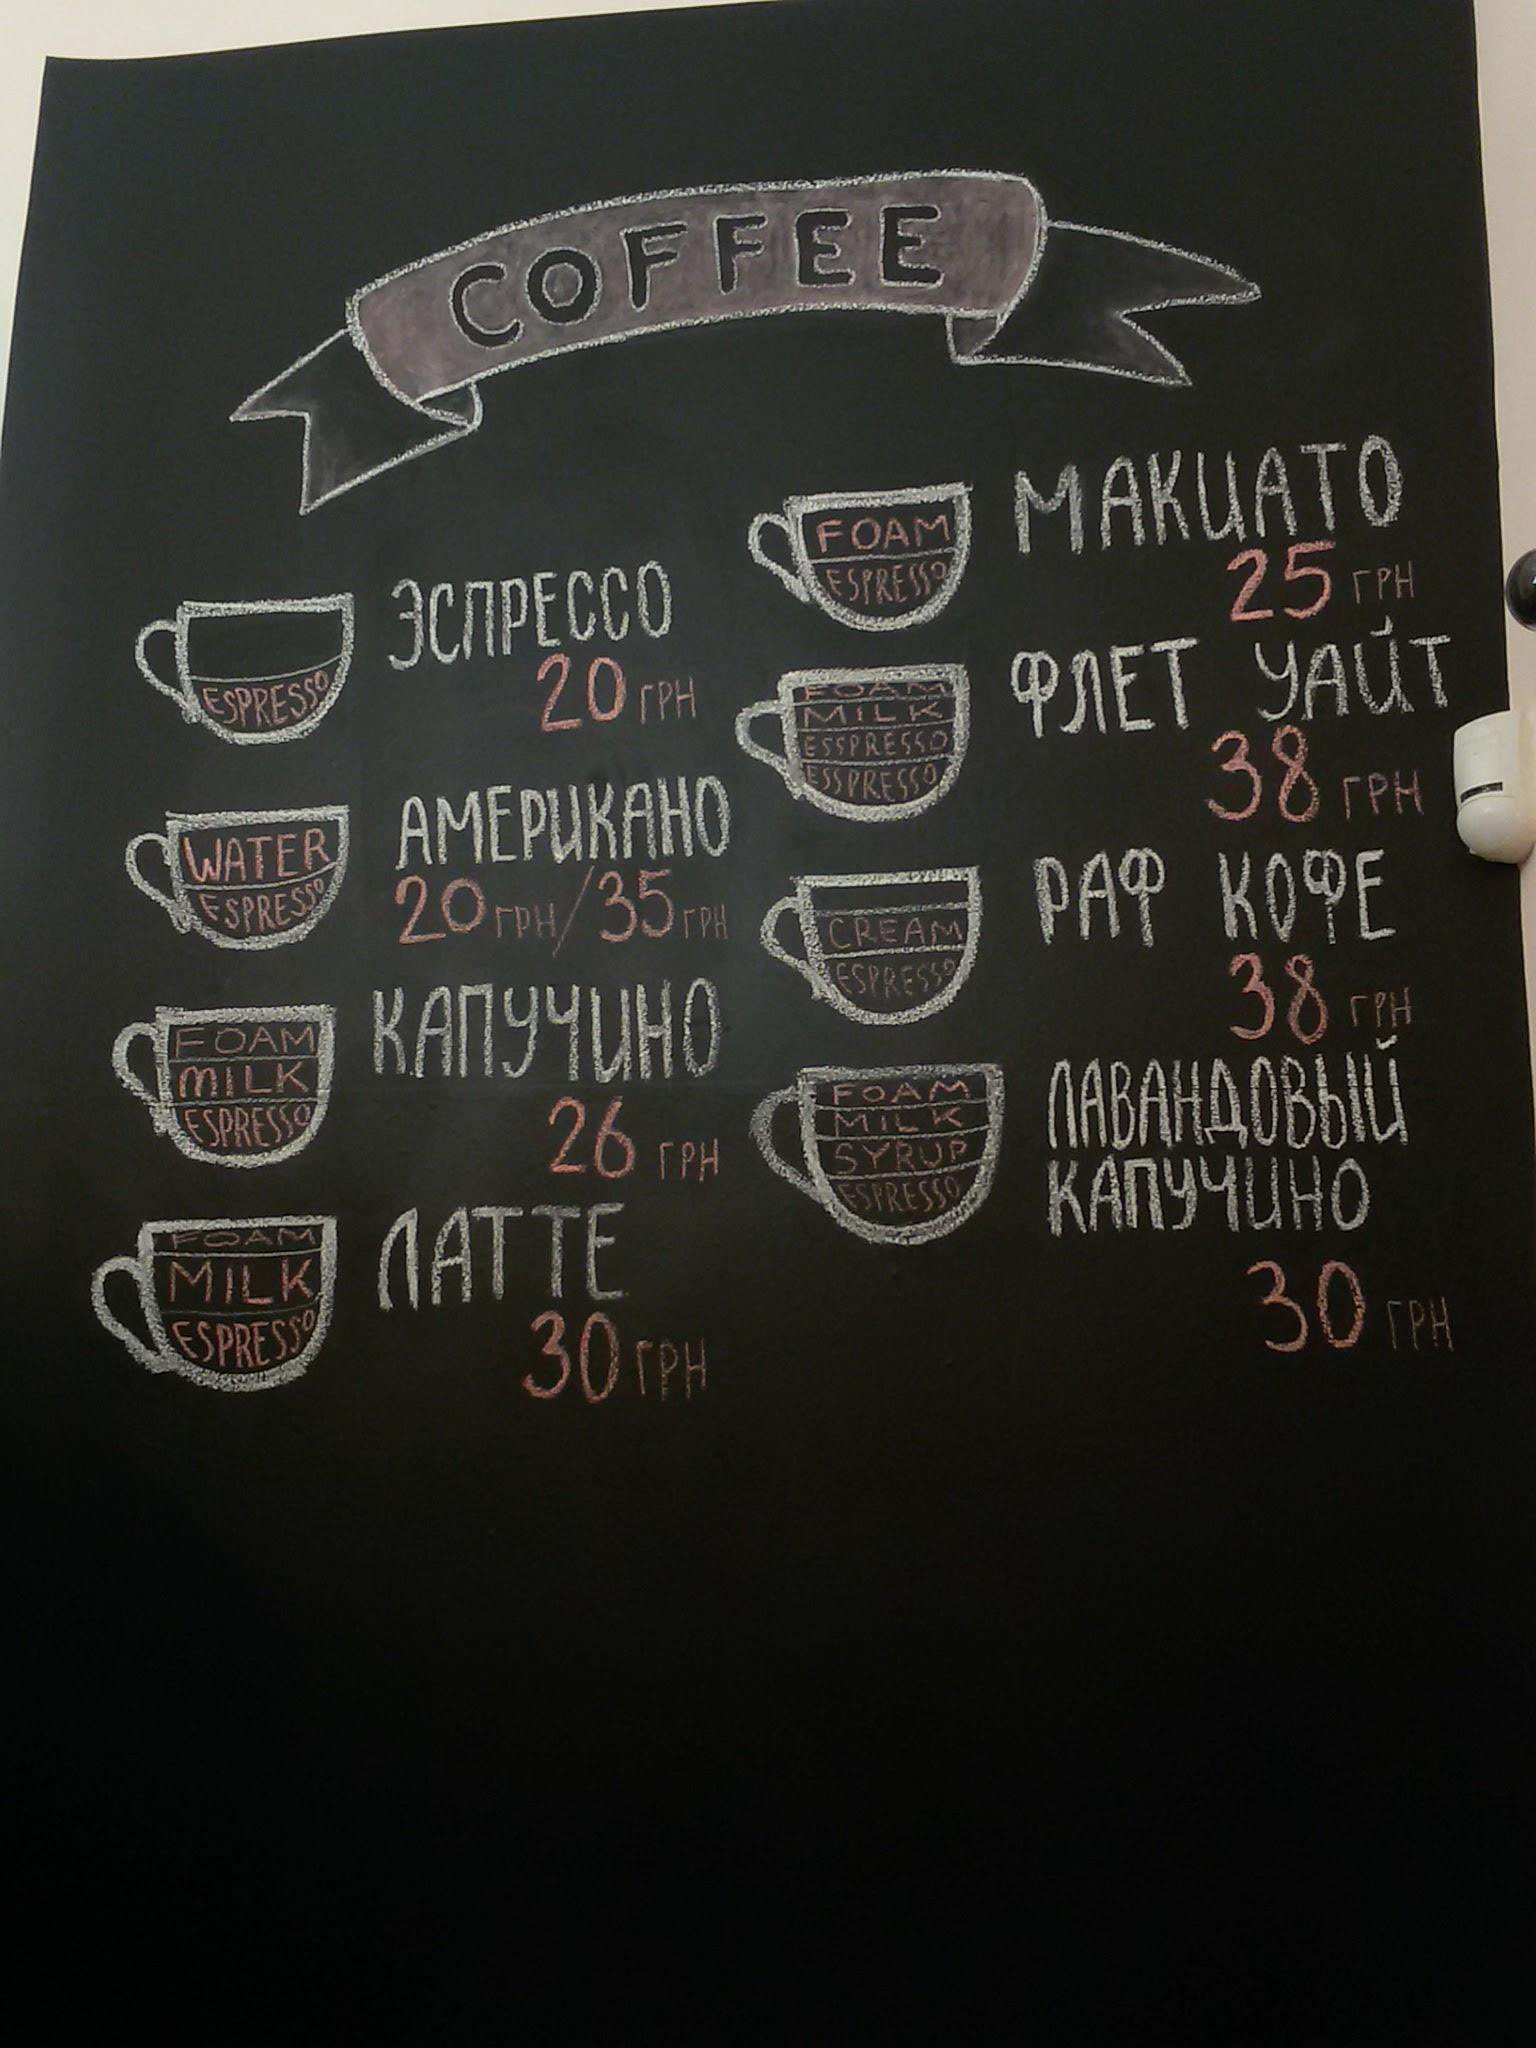 COFFEE
ESPRESSO
ЭСПРЕССО
20 ГРН
WATER
ESPRESSO
АМЕРИКАНО
20 ГРН/35 ГРН
FOAM
MILK
ESPRESSO
КАПУЧИНО
26 ГРН
FOAM
MILK
ESPRESSO
ЛАТТЕ
30 ГРН
FOAM
ESPRESSO
МАКИАТО
25 ГРН
FOAM
MILK
ESSPRESSO
ESSPRESSO
ФЛЕТ УАЙТ
38 ГРН
CREAM
ESPRESSO
РАФ КОФЕ
38 ГРН
FOAM
MILK
SYRUP
ESPRESSO
ЛАВАНДОВЫЙ
КАПУЧИНО
30 ГРН